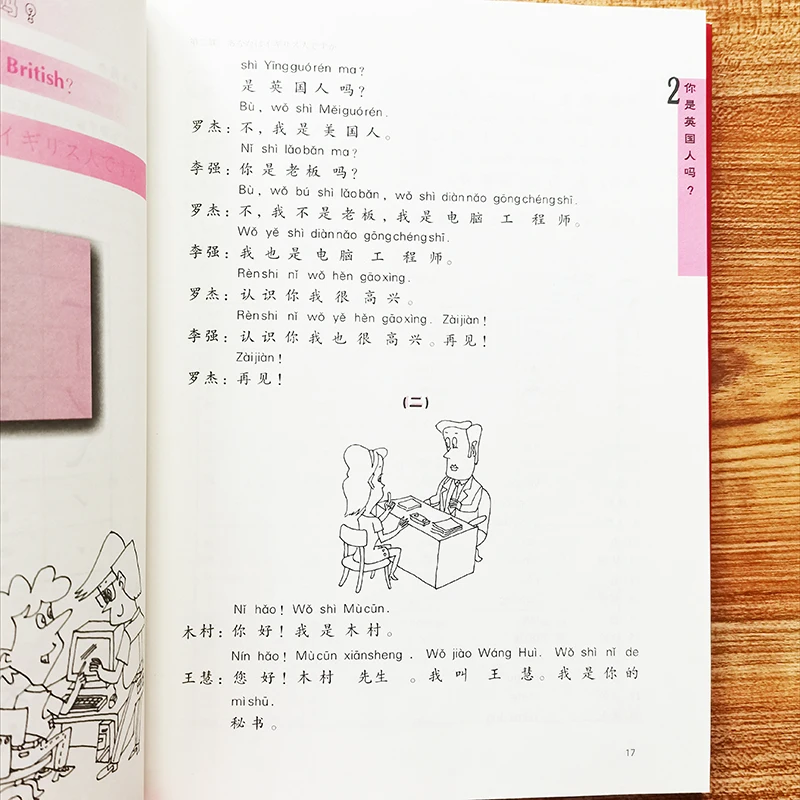 吗?
British?
イギリス人で
shì Yīngguórén ma?
是 英 国 人 吗?
Bù, wǒ shì Měiguórén.
罗杰: 不, 我 是 美 国 人。
Nǐ shì lǎobǎn ma?
李强: 你 是 老 板 吗?
Bù, wǒ bú shì lǎobǎn, wǒ shì diànnǎo gōngchéngshī.
罗杰: 不, 我 不 是 老 板, 我 是 电 脑 工 程 师。
Wǒ yě shì diànnǎo gōngchéngshī.
李强: 我 也 是 电 脑 工 程 师。
Rènshi nǐ wǒ hěn gāoxìng.
罗杰: 认 识 你 我 很 高 兴。
Rènshi nǐ wǒ yě hěn gāoxìng. Zàijiàn!
李强: 认 识 你 我 也 很 高 兴。再 见!
Zàijiàn!
罗杰: 再 见!
(二)
Nǐ hǎo! Wǒ shì Mùcūn.
木村: 你 好! 我 是 木 村。
Nín hǎo! Mùcūn xiānsheng. Wǒ jiào Wáng Huì. Wǒ shì nǐ de
王慧: 您 好! 木 村 先 生 。我 叫 王 慧。我 是 你 的
mìshū.
秘 书。
17
2 你是英国人吗?